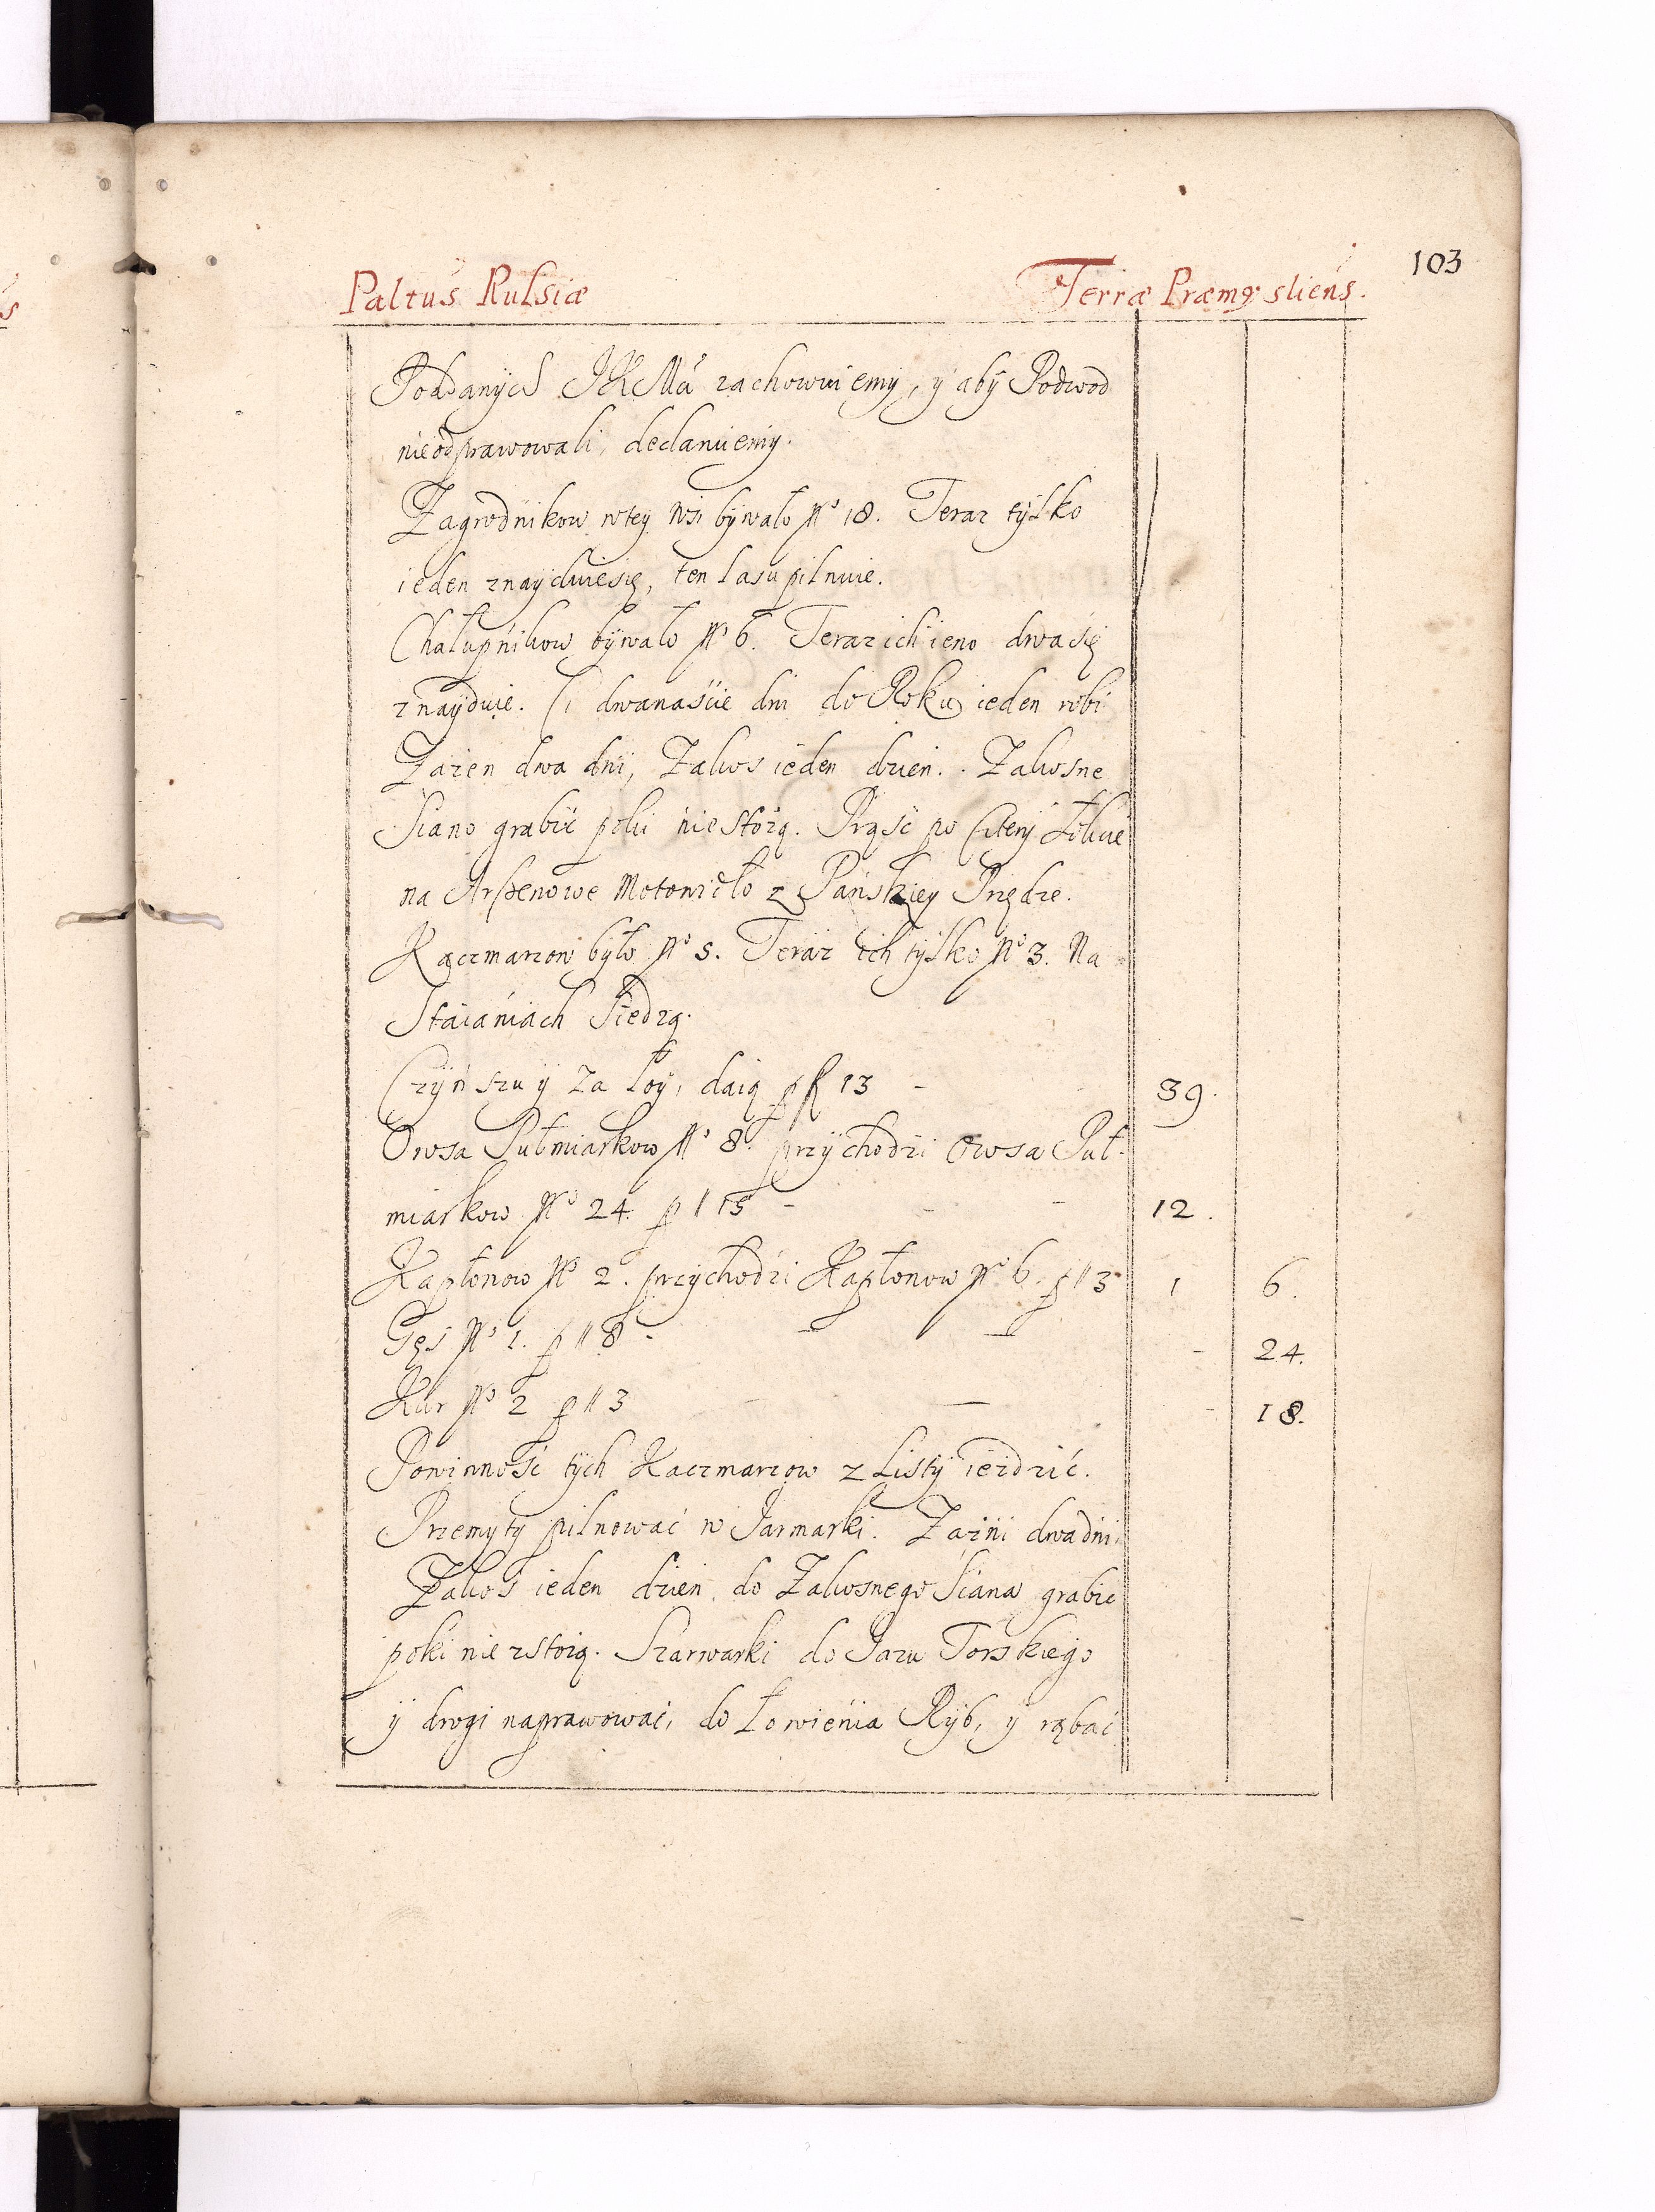 103
Paltus Rusiæ Terræ Præmysliens.
Poddanych JKMći zachowuiemy, y aby Podwod
nieodprawowali, declaruiemy.
Zagrodnikow wtey Wsi bywało No 18. Teraz tylko
ieden znayduiesię, ten lasu pilnuie.
Chałupnikow bywało No 6. Teraz ich ieno dwa się
znayduie. Ci dwanascie dni do Roku ieden robi
Zażen dwa dni, Zakos ieden dzien. Zakosne
Siano grabić poki niestożą. Prząść po Cztery Łokcie
na Arszenowe Motowidło z Pańskiey Przędze.
Kaczmarzow było No 5. Teraz ich tylko No 3. Na
Staianiach Siedzą.
Czynszu y Za łoy, daią p f 13 - 39.
Owsa Pułmiarkow No 8. przychodzi Owsa Puł-
miarkow No 24. p // 15 - - - 12.
Kapłonow No 2. przychodzi Kapłonow No 6. p // 3 1 6.
Gęs No 1. p // 8 - - - - 24.
Kur No 2 p // 3 - - - 18.
Powinność tych Kaczmarzow z Listy ieździć.
Przemyty pilnować w Jarmarki. Zażni dwa dni
Zakos ieden dzien do Zakosnego Siana grabic
poki nie zstoią. Szarwarki do Jazu Torskiego
y drogi naprawować, do Łowienia Ryb, y rąbać